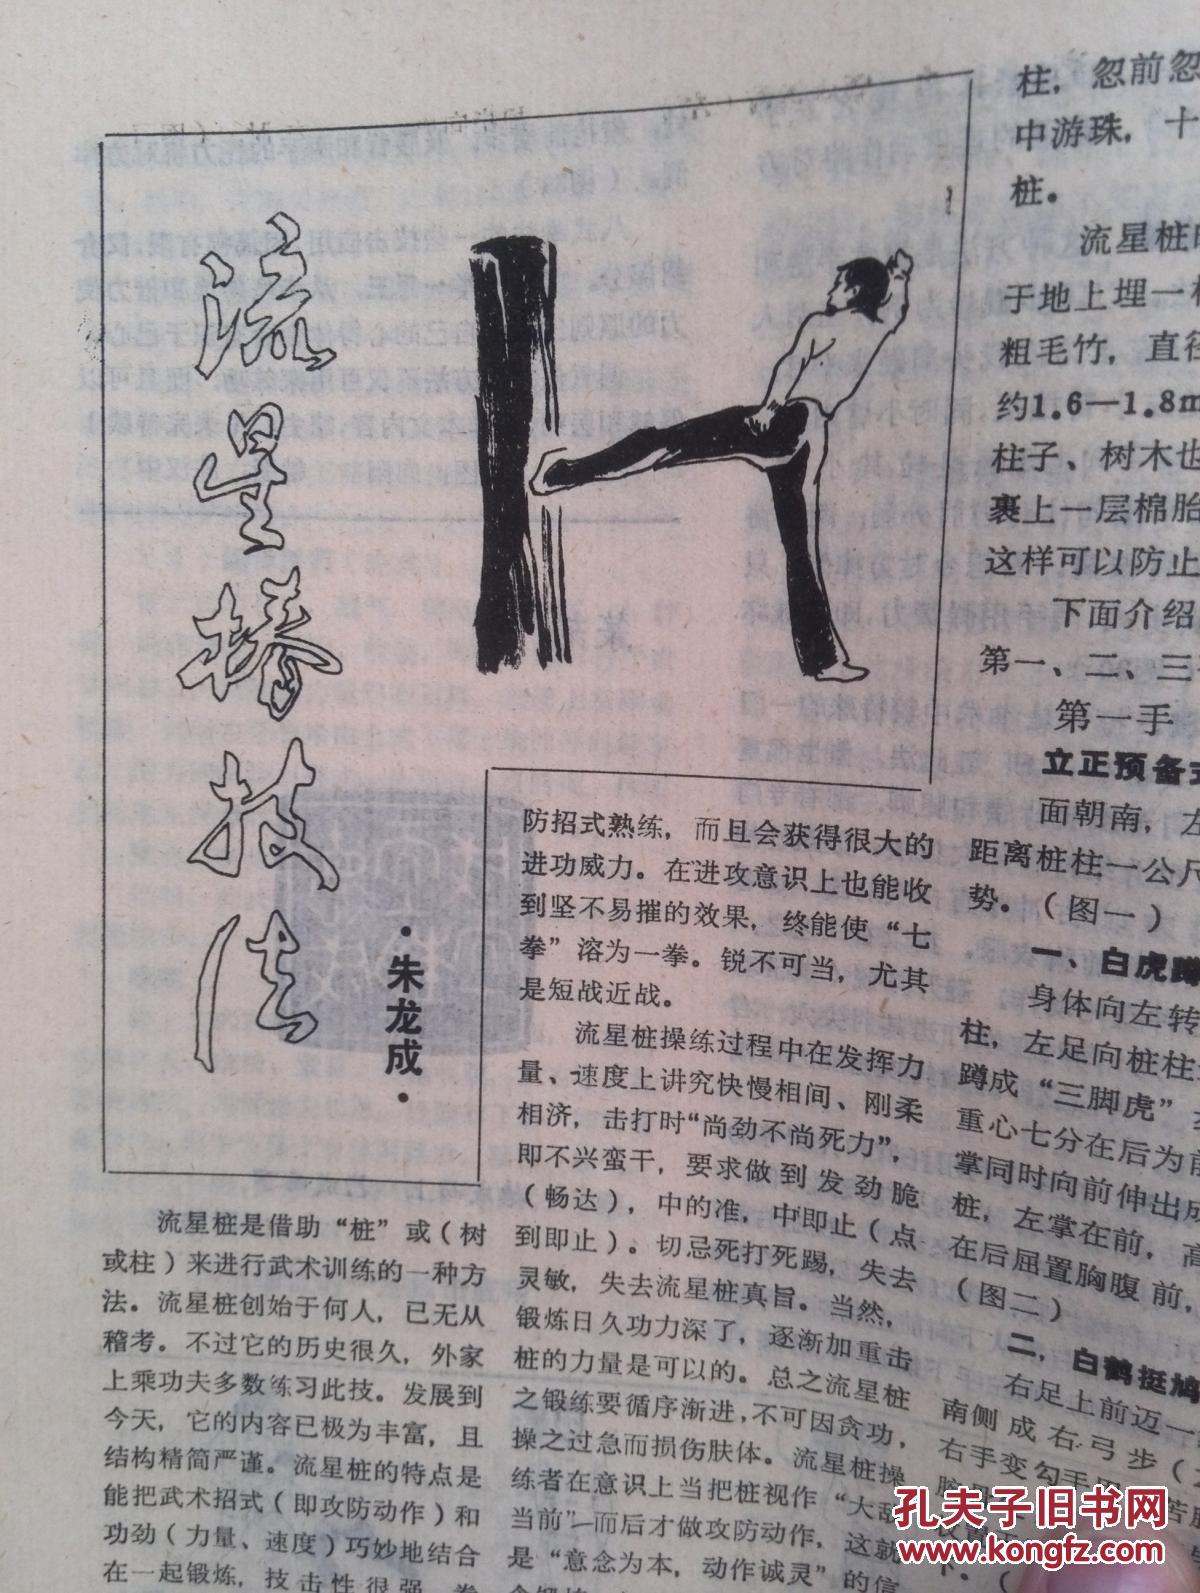 流星桩技法
·朱龙成·
流星桩是借助“桩”或（树
或柱）来进行武术训练的一种方
法。流星桩创始于何人，已无从
稽考。不过它的历史很久，外家
上乘功夫多数练习此技。发展到
今天，它的内容已极为丰富，且
结构精简严谨。流星桩的特点是
能把武术招式（即攻防动作）和
功劲（力量、速度）巧妙地结合
在一起锻炼，技击性很强。
防招式熟练，而且会获得很大的
进功威力。在进攻意识上也能收
到坚不易摧的效果，终能使“七
拳”溶为一拳。锐不可当，尤其
是短战近战。
流星桩操练过程中在发挥力
量、速度上讲究快慢相间、刚柔
相济，击打时“尚劲不尚死力”，
即不兴蛮干，要求做到发劲脆
（畅达），中的准，中即止（点
到即止）。切忌死打死踢，失去
灵敏，失去流星桩真旨。当然，
锻炼日久功力深了，逐渐加重击
桩的力量是可以的。总之流星桩
之锻炼要循序渐进，不可因贪功，
操之过急而损伤肤体。流星桩操
练者在意识上当把桩视作“大敌
当前”—而后才做攻防动作，这就
是“意念为本，动作诚灵”的信
柱，忽前忽
中游珠，十
桩。
流星桩
于地上埋一
粗毛竹，直径
约1.6—1.8m
柱子、树木也
裹上一层棉胎
这样可以防止
下面介绍
第一、二、三
第一手
立正预备
面朝南，左
距离桩柱一公尺
势。（图一）
一、白虎蹲
身体向左转
柱，左足向桩柱
蹲成“三脚虎”
重心七分在后为前
掌同时向前伸出成
桩，左掌在前，高
在后屈置胸腹前，
（图二）
二，白鹤挺
右足上前迈一
南侧成右弓步（
右手变勾手
孔夫子旧书网
www.kongfz.com